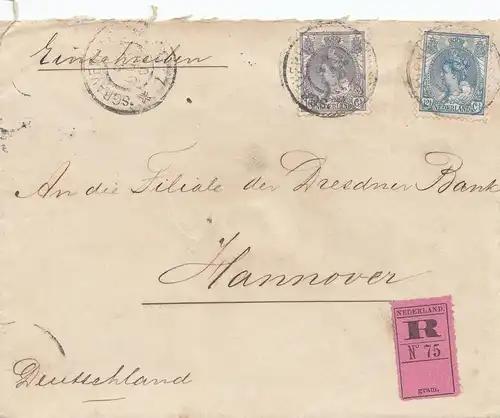 Einschreiben
'SGRAVE
NEDERLAND
NEDERLAND
12½ Ct
An die Filiale der Dresdner Bank
Hannover
NEDERLAND.
R
No 75
gram.
Deutschland